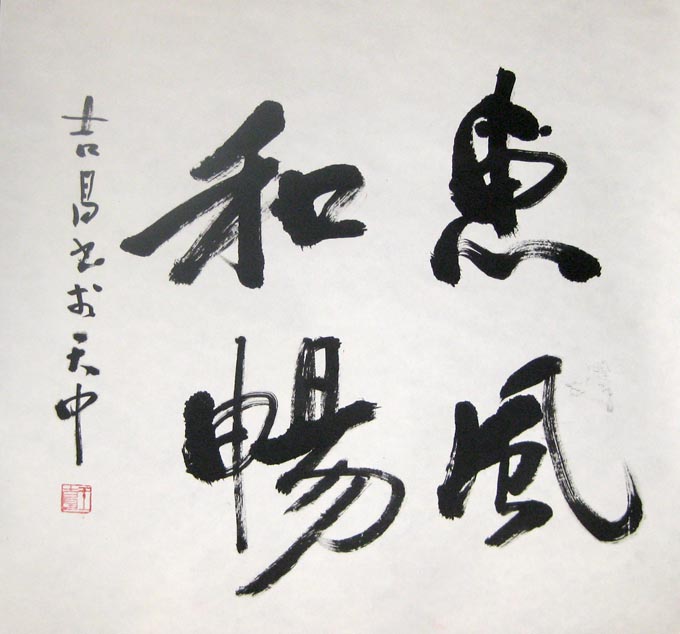 惠風
和暢
吉昌书於天中